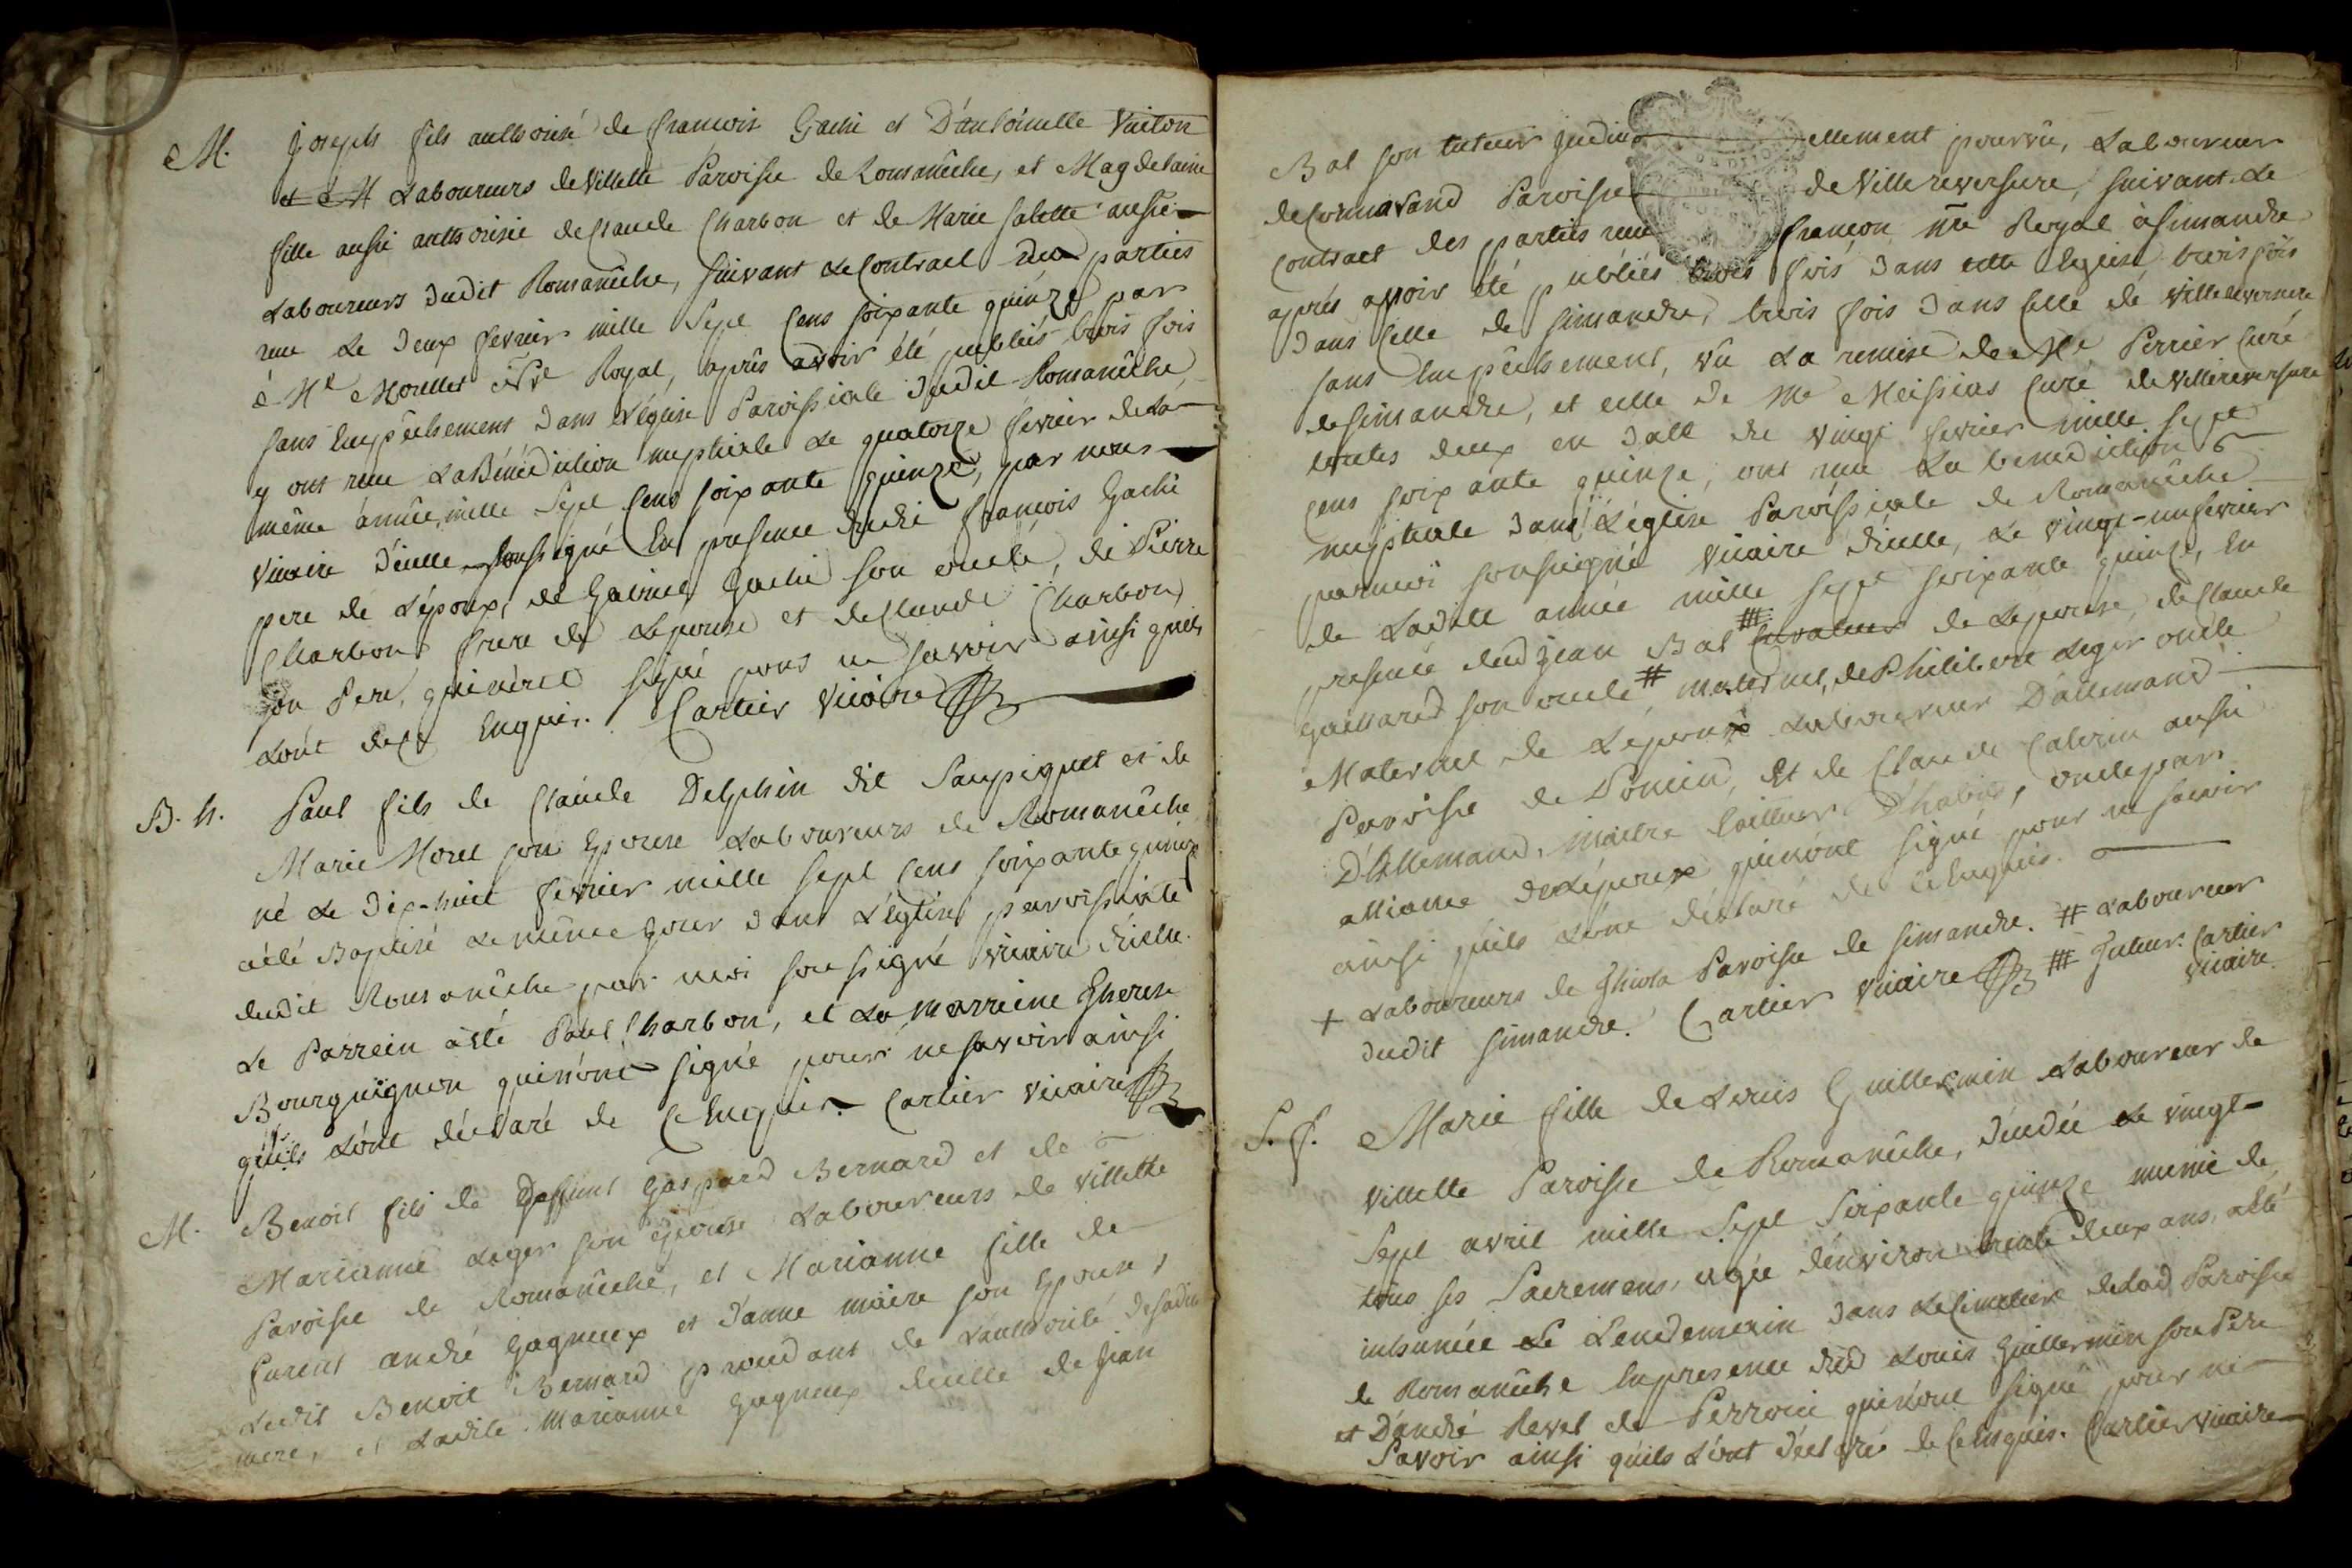 M. Joseph fils authorisé de francois Gachi et D'antoinette Vuiton
et d M Laboureurs de Villette Paroisse de Romanêche, et Magdelaine
fille aussi authorisée de Claude Charbon et de Marie Salette aussi
Laboureurs dudit Romanêche, suivant Le Contract des parties
reçu Le deux fevrier mille Sept Cens soixante quinze par
Me Morellet Royal, après avoir été publiés trois fois
sans Empêchement dans L'église Paroissiale dudit Romanêche,
y ont reçue La Bénédiction nuptiale Le quatorze fevrier de La
même année, mille Sept Cens soixante quinze, par nous
Vicaire d'icelle soussigné En presence dudi francois Gachi
pere de L'époux, de Gabriel Gachi son oncle, de Pierre
Charbon frere de L'epouse et de Claude Charbon
son Pere, qui n'ont signé pour ne savoir ainsi quils
L'ont de ce Enquis. Cartier Vicaire
B. h. Paul fils de Claude Delphin dit Saupiquet et de
Marie Morel son Epouse Laboureurs de Romanêche
né Le dix-huit fevrier mille sept cens soixante quinze
a été Baptisé Le même jour dans L'église paroissiale
dudit Romanêche par moi soussigné Vicaire d'icelle.
Le Parrein a été Paul Charbon, et La Marreine Therese
Bourguignon qui n'ont signé pour ne savoir ainsi
quils L'ont déclaré de ce Enquis. Cartier Vicaire
M. Benoit fils de Deffunt Gaspard Bernard et de
Marianne Leger son épouse Laboureurs de Villette
Paroisse de Romanêche, et Marianne fille de
furent andré Gagneux et d'anne maire son Epouse,
Ledit Benoit Bernard procedant de L'authorité de sadite
mere, et Ladite Marianne Gagneux d'icelle de Jean
Bal son tuteur judiciellement pourvû, Laboureur
de Cornavand Paroisse de Villereversure, suivant Le
contract des parties reçu francon nre Royal à Simandre
après avoir été publiés trois fois dans cette Eglise trois fois
dans celle de Simandre, trois fois dans celle de Villereversure
sans Empêchement, vû La remise de Me Perrier Curé
de Simandre, et celle de Me Meissias Curé de Villereversure
toutes deux en date du vingt fevrier mille sept
cens soixante quinze, ont reçu La benediction
nuptiale dans L'église Paroissiale de Romanêche
par moi soussigné Vicaire d'icelle, Le vingt-un fevrier
de Ladite année mille sept soixante quinze, En
presence dud Jean Bal ⧻ Curateur de L'epouse, de Claude
Gaillard son oncle # maternel, de Philibert Leger oncle
Maternel de L'époux Laboureur D'allemand
Paroisse de Pomier, Et de Claude Cabrin aussi
D'Allemand, maitre tailleur D'habits, oncle par
alliance de L'époux qui n'ont signé pour ne savoir
ainsi quils L'ont déclaré de ce Enquis.
+ Laboureurs de Thiola Paroisse de Simandre. # Laboureur
dudit Simandre. Cartier Vicaire ⧻ Tuteur. Cartier
Vicaire
S. f. Marie fille de Louis Guillermin Laboureur de
Villette Paroisse de Romanêche, décedée Le vingt-
Sept avril mille Sept Soixante quinze munie de
tous ses Sacremens, agée d'environ trente deux ans, a été
inhumée Le Lendemain dans Le Cimetiere de Lad Paroisse
de Romanêche En presence dud Louis Guillermin son Pere
et D'andré Revel de Perroni qui n'ont signé pour ne
Savoir ainsi quils L'ont déclaré de ce Enquis. Cartier Vicaire